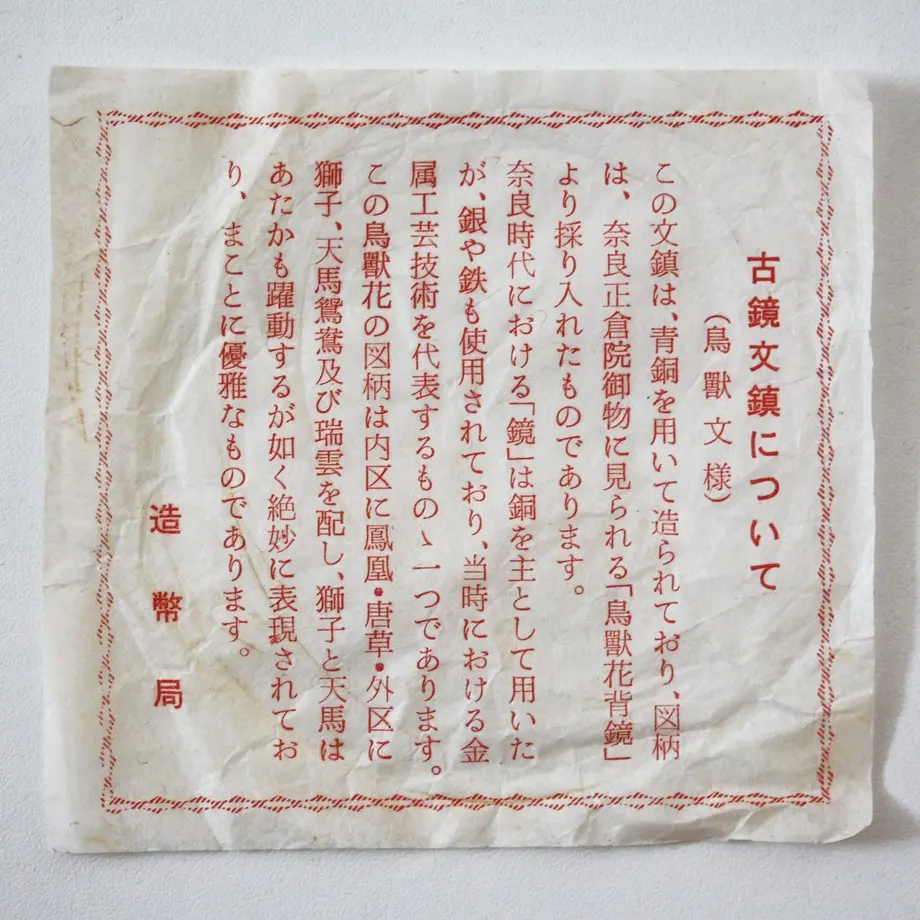 古鏡文鎮について
（鳥獸文様）
この文鎮は、青銅を用いて造られており、図柄
は、奈良正倉院御物に見られる「鳥獸花背鏡」
より採り入れたものであります。
奈良時代における「鏡」は銅を主として用いた
が、銀や鉄も使用されており、当時における金
属工芸技術を代表するものゝ一つであります。
この鳥獸花の図柄は内区に鳳凰・唐草・外区に
獅子、天馬鴛鴦及び瑞雲を配し、獅子と天馬は
あたかも躍動するが如く絶妙に表現されてお
り、まことに優雅なものであります。
造幣局